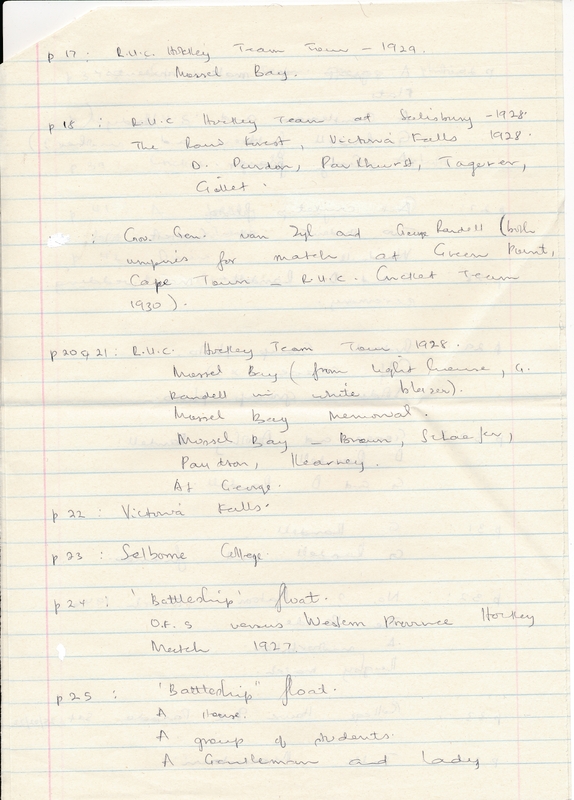 p 17 : R.U.C. Hockey Team Tour - 1929.
Mossel Bay.
p 18 : R.U.C Hockey Team at Salisbury - 1928.
The Rain Forest, Victoria Falls 1928.
D. Purdon, Parkhurst,
: Gov. Gen. van Zyl and George Randell (both
umpires for match at Green Point,
Cape Town - R.U.C. Cricket Team
1930).
p 20 & 21 : R.U.C. Hockey Team Tour 1928.
Mossel Bay (from lighthouse, G.
Randell in white blazer).
Mossel Bay Memorial.
Mossel Bay - Brown, Schaefer,
Kearney.
At George.
p 22 : Victoria Falls.
p 23 : Selborne College.
p 24 : 'Battleship' float.
O.F.S versus Western Province Hockey
Match 1927
p 25 : 'Battleship" float.
A House.
A group of students.
A Gentleman and Lady